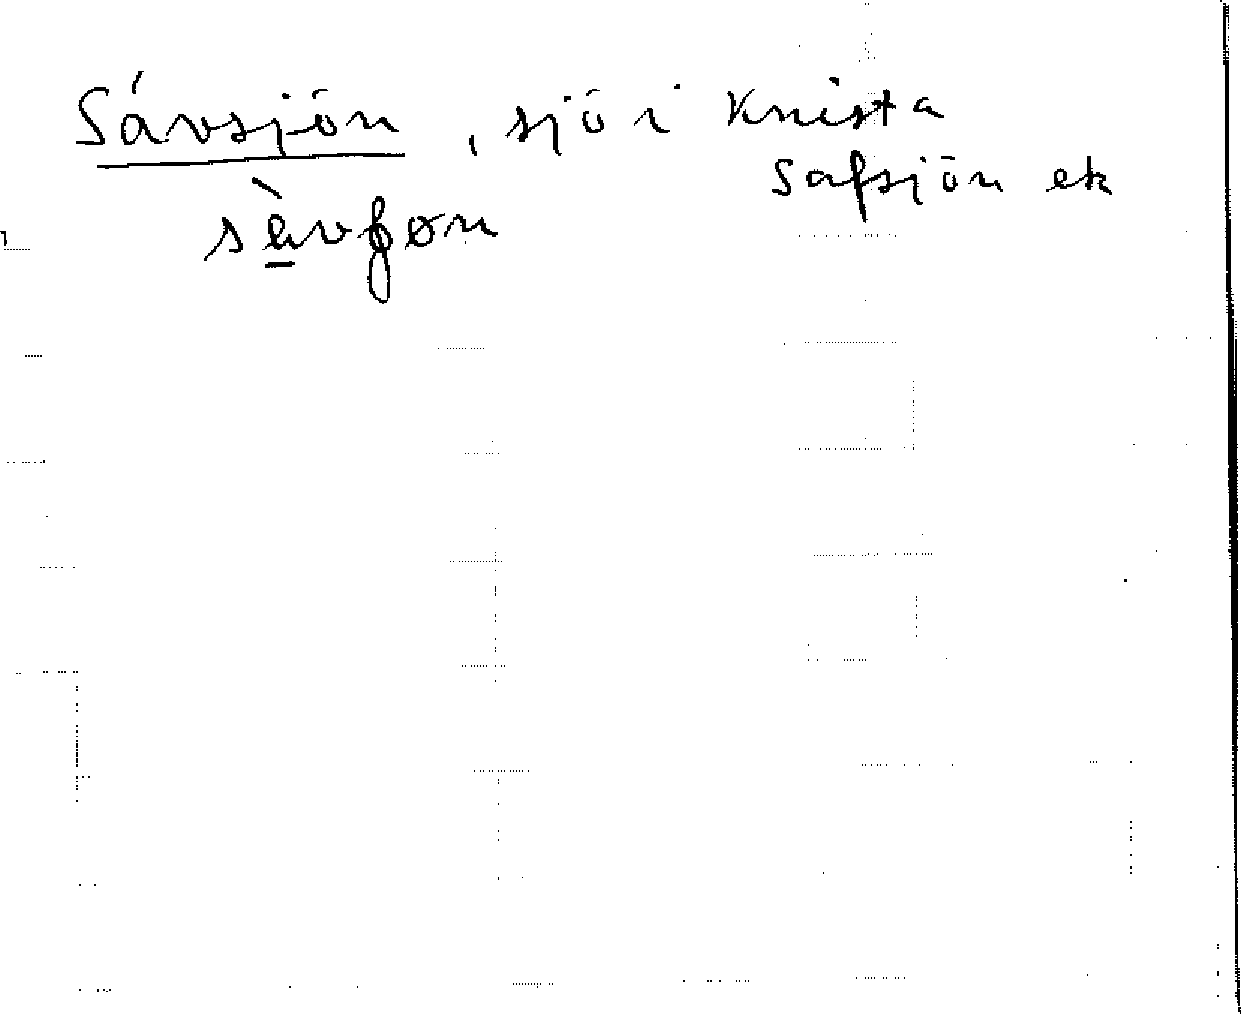 Sävsjön, sjö i Knista
Säfsjön ek
sè̱vʃøn